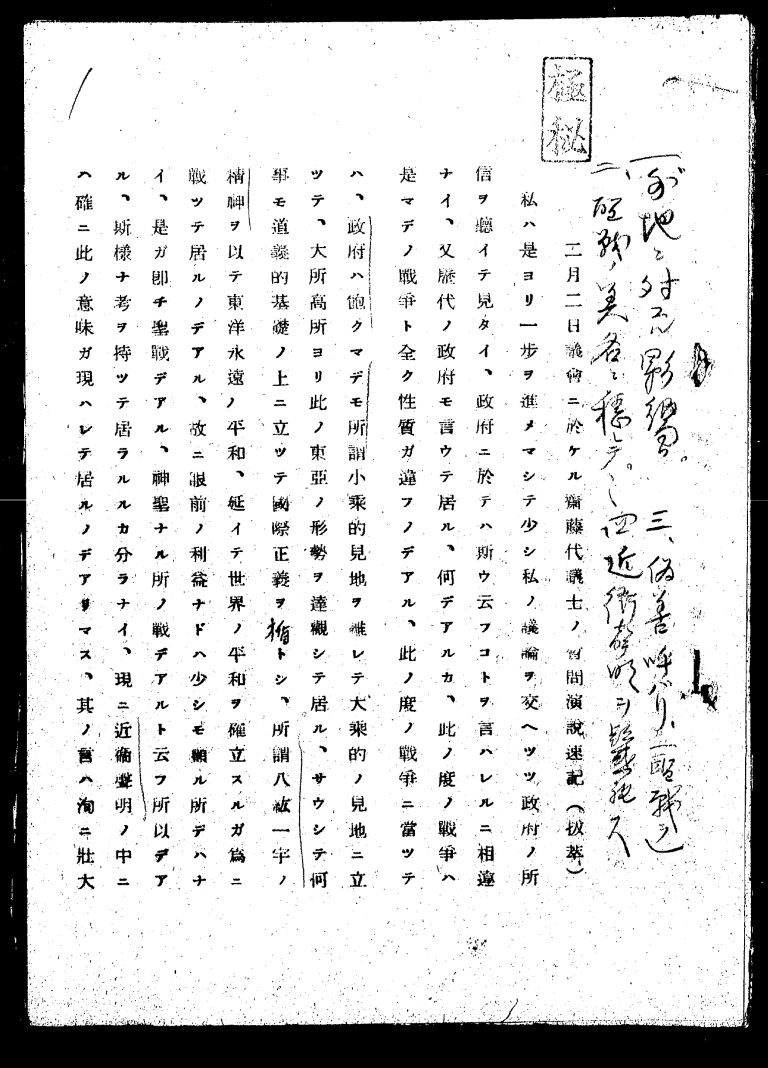 極秘
二月二日議會ニ於ケル齋藤代議士ノ質問演說速記(拔萃)
私ハ是ヨリ一步ヲ進メマシテ少シ私ノ議論ヲ交ヘツツ政府ノ所
信ヲ聽イテ見タイ、政府ニ於テハ斯ウ云フコトヲ言ハレルニ相違
ナイ、又歷代ノ政府モ言ウテ居ル、何デアルカ、此ノ度ノ戰爭ハ
是マデノ戰爭ト全ク性質ガ違フノデアル、此ノ度ノ戰爭ニ當ツテ
ハ、政府ハ飽クマデモ所謂小乘的見地ヲ離レテ大乘的ノ見地ニ立
ツテ、大所高所ヨリ此ノ東亞ノ形勢ヲ達觀シテ居ル、サウシテ何
事モ道義的基礎ノ上ニ立ツテ國際正義ヲ楯トシ、所謂八紘一宇ノ
精神ヲ以テ東洋永遠ノ平和、延イテ世界ノ平和ヲ確立スルガ爲ニ
戰ツテ居ルノデアル、故ニ眼前ノ利益ナドハ少シモ顧ル所デハナ
イ、是ガ卽チ聖戰デアル、神聖ナル所ノ戰デアルト云フ所以デア
ル、斯樣ナ考ヲ持ツテ居ラルルカ分ラナイ、現ニ近衞聲明ノ中ニ
ハ確ニ此ノ意味ガ現ハレテ居ルノデアリマス、其ノ言ハ洵ニ壯大